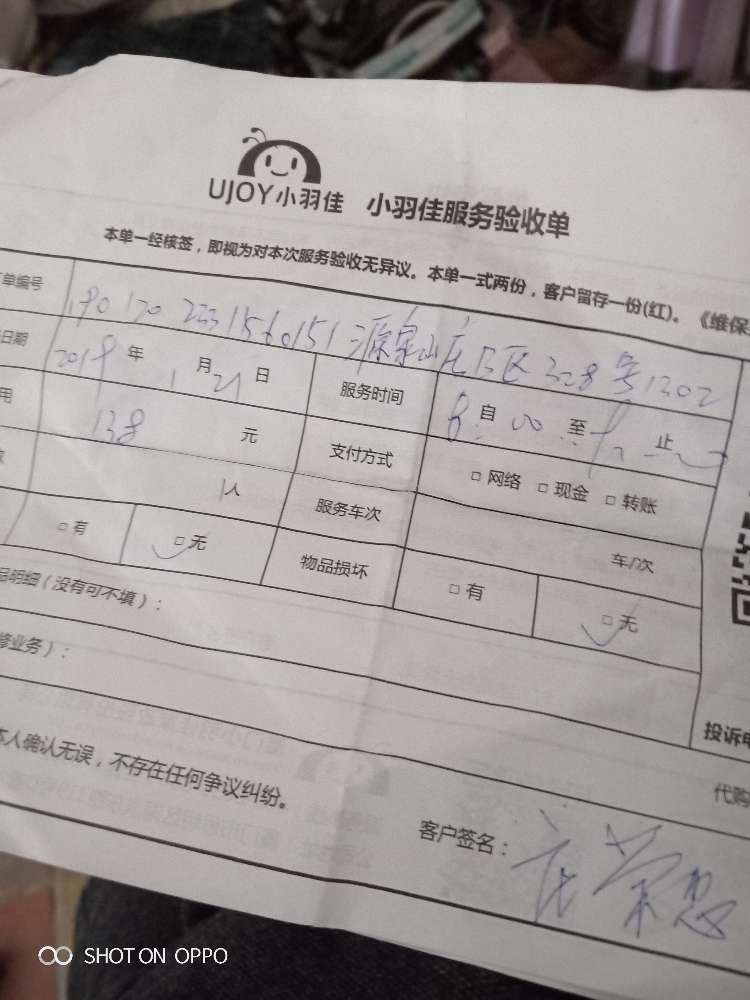 UJOY小羽佳 小羽佳服务验收单
本单一经核签，即视为对本次服务验收无异议。本单一式两份，客户留存一份(红)。《维保
单编号 1901202231560151 源泉山庄B区328号1302
日期 2019年1月21日 服务时间 8:00 自 至 止
用 138 元 支付方式 □网络 □现金 □转账
人 服务车次 车/次
□有 □无 物品损坏 □有 □无
明细（没有可不填）：
修业务）：
投诉电
本人确认无误，不存在任何争议纠纷。
代购
客户签名：
SHOT ON OPPO